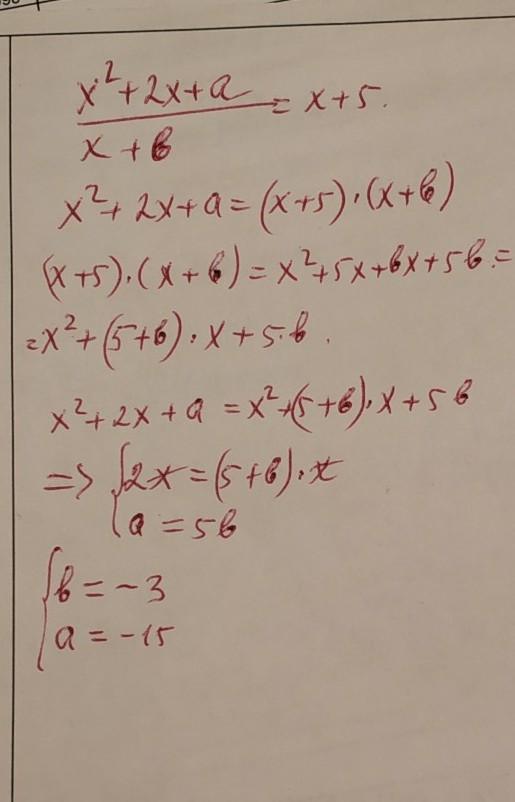 x²+2x+a
―――― = x+5.
x+b
x²+2x+a=(x+5)·(x+b)
(x+5)·(x+b)=x²+5x+bx+5b.=
=x²+(5+b)·x+5·b.
x²+2x+a=x²+(5+b)·x+5b
=> {2x=(5+b)·x
{a=5b
{b=-3
{a=-15